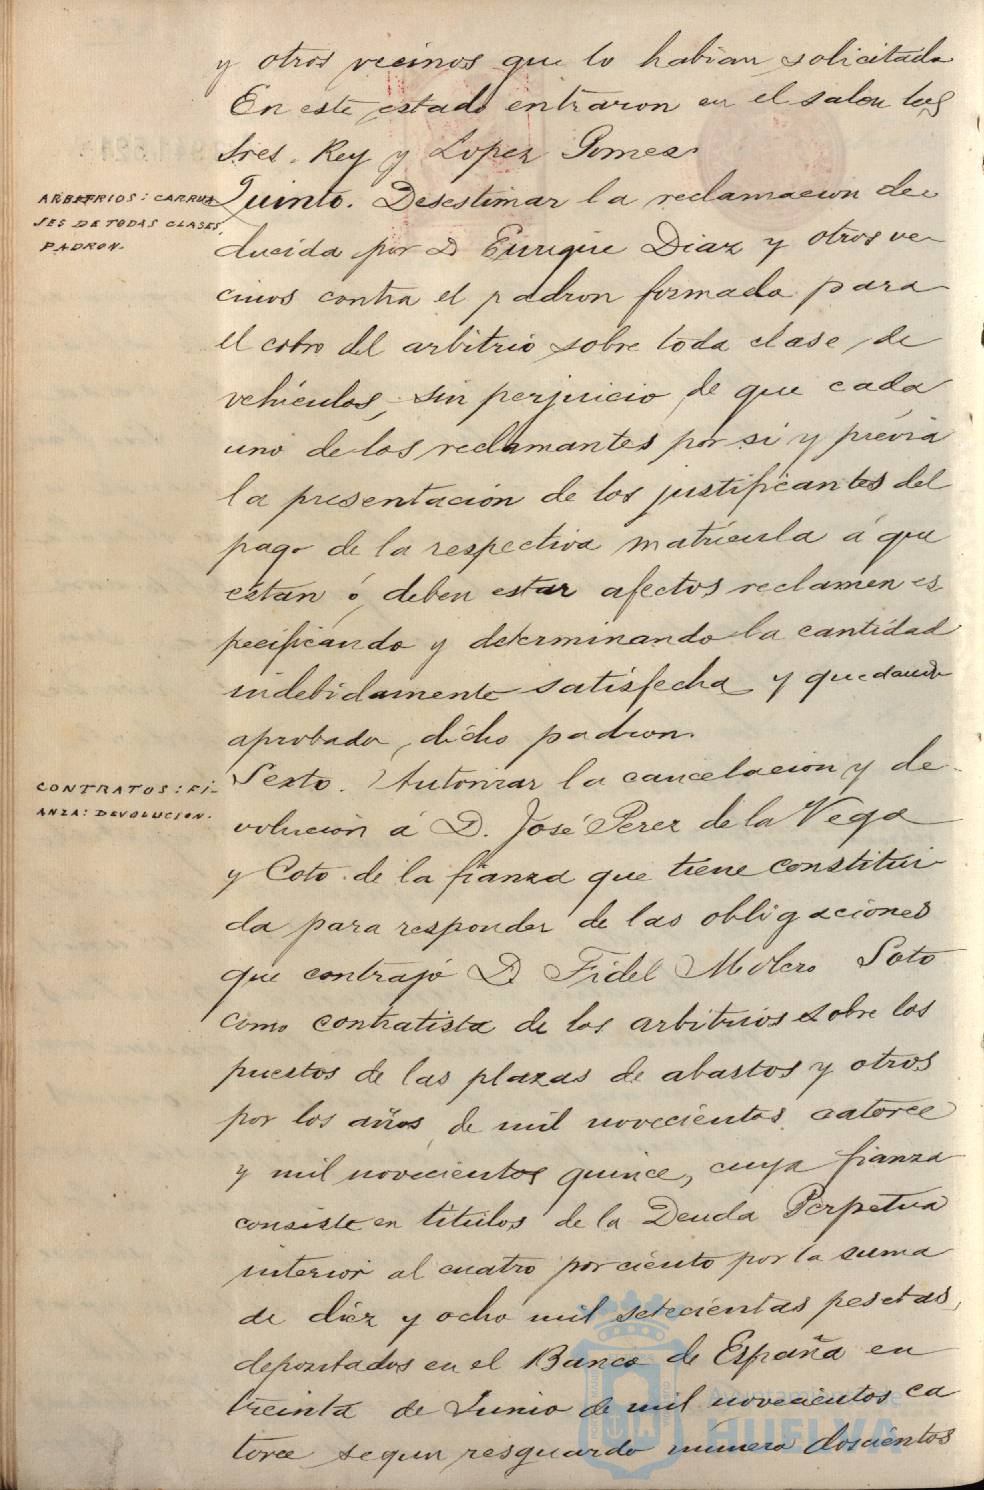 y otros vecinos que lo habian solicitado
En este estado entraron en el salon los
Sres. Rey y Lopez Gomez.
ARBITRIOS: CARRUA
JES DE TODAS CLASES,
PADRON.
Quinto. Desestimar la reclamacion de
ducida por D Enrique Diaz y otros ve-
cinos contra el padron formado para
el cobro del arbitrio sobre toda clase de
vehículos, sin perjuicio de que cada
uno de los reclamantes por si y prévia
la presentación de los justificantes del
pago de la respectiva matrícula á que
estan ó deben estar afectos reclamen es
pecificando y determinando la cantidad
indebidamente satisfecha y quedando
aprobado dicho padron.
CONTRATOS: FI-
ANZA: DEVOLUCION.
Sexto. Autorizar la cancelacion y de-
volución á D. José Perez de la Vega
y Coto de la fianza que tiene constitui-
da para responder de las obligaciones
que contrajó D Fidel Molero Soto
como contratista de los arbitrios sobre los
puestos de las plazas de abastos y otros
por los años de mil novecientos catorce
y mil novecientos quince, cuya fianza
consiste en títulos de la Deuda Perpetua
interior al cuatro por ciento por la suma
de diez y ocho mil setecientas pesetas,
depositados en el Banco de España en
treinta de Junio de mil novecientos ca
torce segun resguardo numero doscientos
Ayuntamiento de
HUELVA